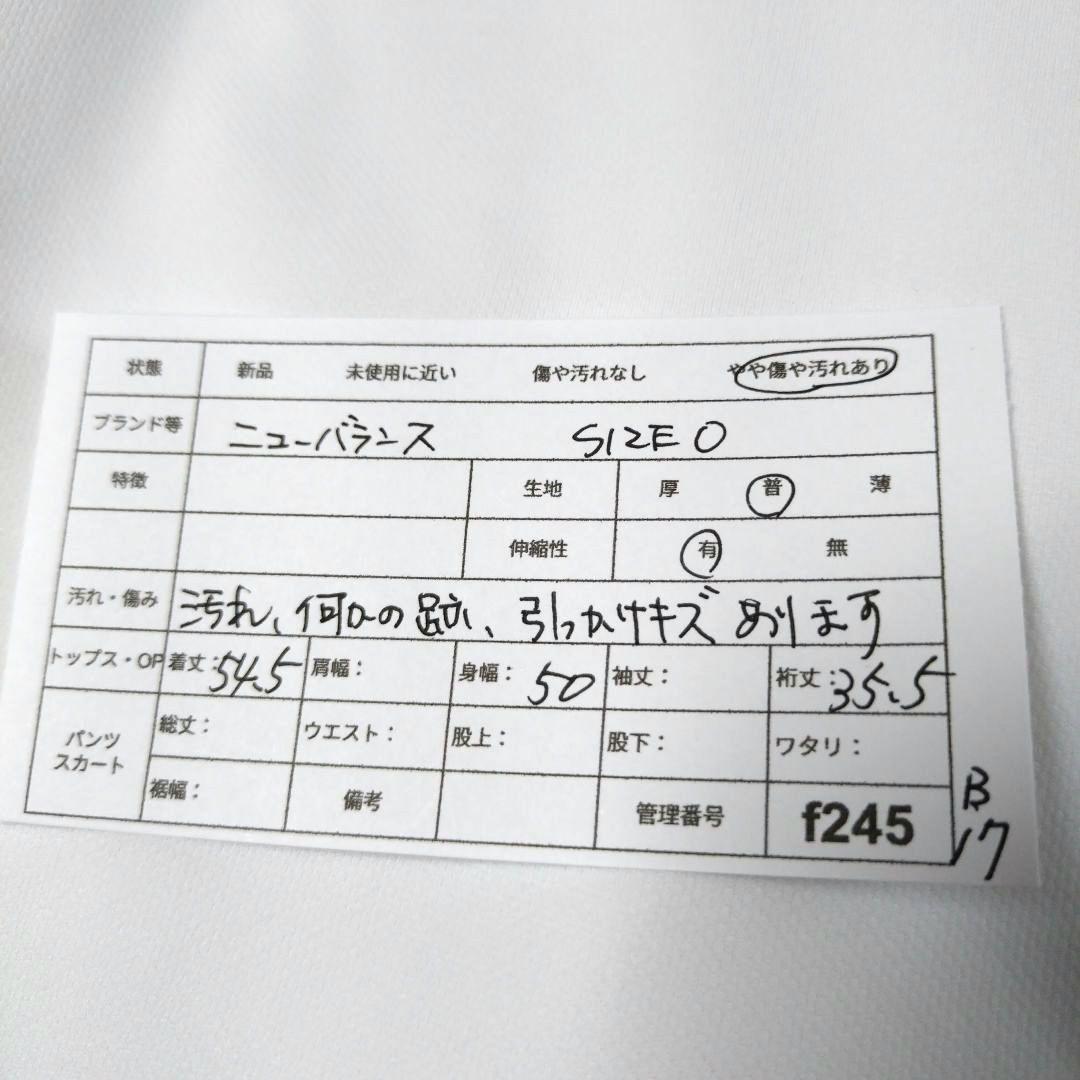 状態 新品 未使用に近い 傷や汚れなし やや傷や汚れあり
ブランド等 ニューバランス SIZE O
特徴 生地 厚 普 薄
伸縮性 有 無
汚れ・傷み 汚れ、何かの跡、引っかけキズあります
トップス・OP 着丈:54.5 肩幅: 身幅:50 袖丈: 裄丈:35.5
パンツ スカート 総丈: ウエスト: 股上: 股下: ワタリ:
裾幅: 備考 管理番号 f245
B
17